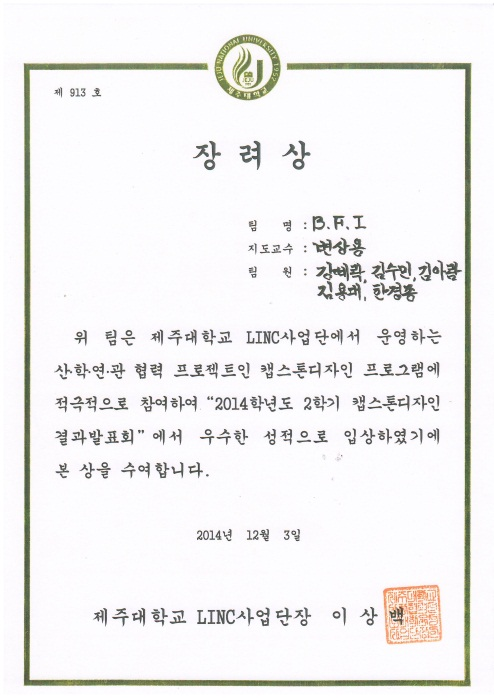 JEJU NATIONAL UNIVERSITY 1952
제주대학교
제 913 호
장 려 상
팀 명 : B.F.I
지도교수 : 변상용
팀 원 : 강베륵, 김수민, 김아람
김용대, 한경종
위 팀은 제주대학교 LINC사업단에서 운영하는
산학연·관 협력 프로젝트인 캡스톤디자인 프로그램에
적극적으로 참여하여 “2014학년도 2학기 캡스톤디자인
결과발표회”에서 우수한 성적으로 입상하였기에
본 상을 수여합니다.
2014년 12월 3일
제주대학교 LINC사업단장 이 상 백